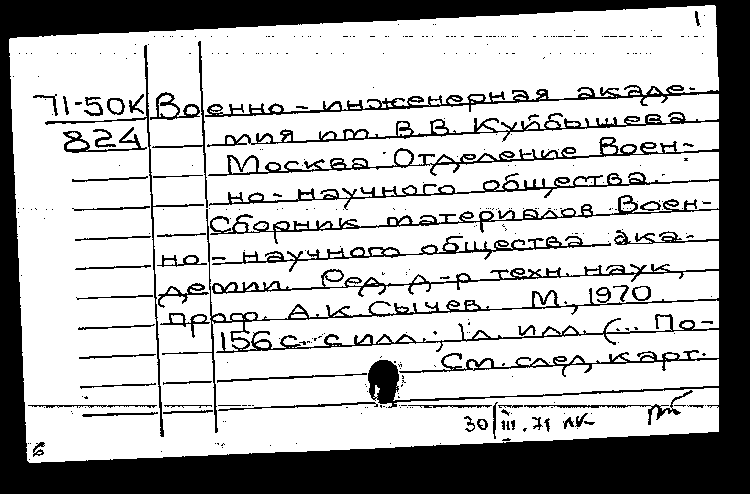 1
71-50К Военно-инженерная акаде-
824 мия им. В.В. Куйбышева.
Москва. Отделение Воен-
но-научного общества.
Сборник материалов Воен-
но-научного общества ака-
демии. Ред. д-р техн. наук,
проф. А.К. Сычев. М., 1970.
156 с. с илл.; 1 л. илл. (... По-
См. след. карт.
30/III.71 ЛК
6